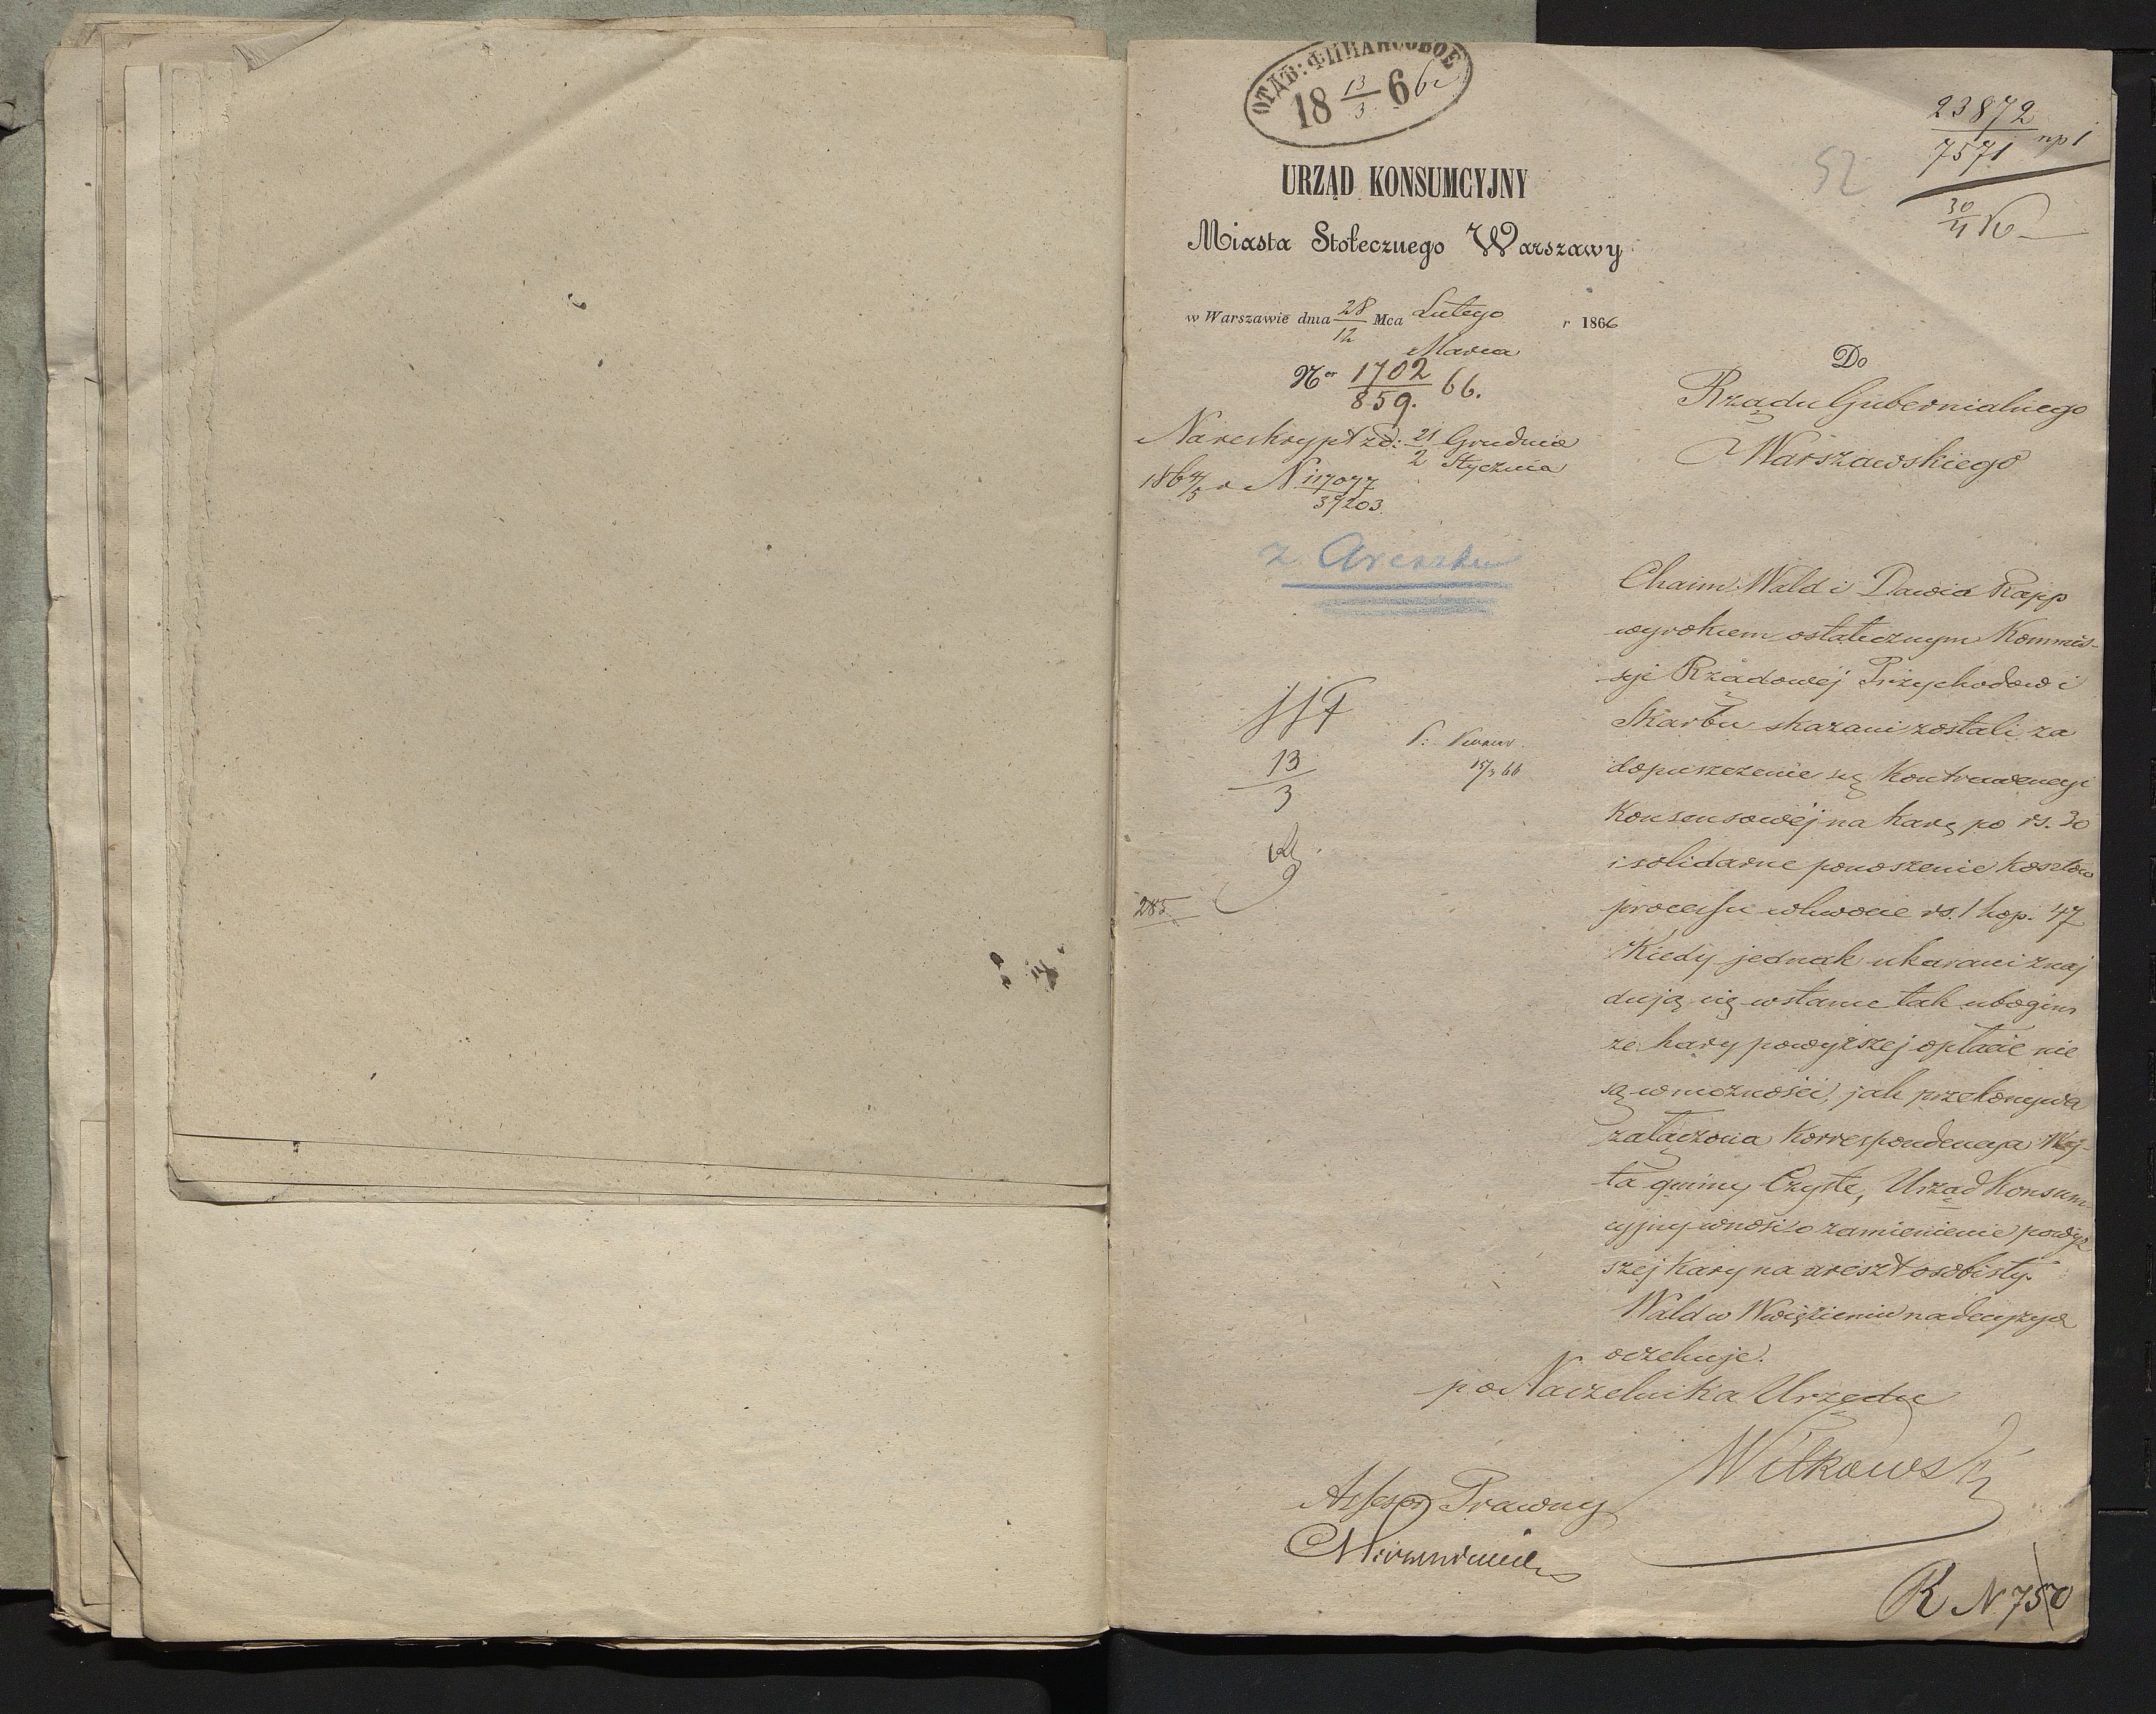 ОТДѢ: ФИНАНСОВОЕ
18 13/3 66
23872
7571 np 1
52
30/4
URZĄD KONSUMCYJNY
Miasta Stołecznego Warszawy
w Warszawie dnia 28/12 Mca Lutego r 1866
Marca
Ner 1702/859. 66.
Na reskrypt z d: 21/2 Grudnia
Stycznia
1864/5 r N 117077
37203.
z Aresztu
Do
Rządu Gubernialnego
Warszawskiego
13
3
15/3 66
285
Chaim Wald i Dawid Rapp
wyrokiem ostatecznym Kommis-
syi Rządowéj Przychodów i
Skarbu skazani zostali za
dopuszczenie się Kontrawencyi
Konsensowéj na karę po rs. 30
i solidarne ponoszenie kosztów
processu w kwocie rs. 1 kop. 47
Kiedy jednak ukarani znaj
dują się w stanie tak ubogim
że kary powyższej opłacić nie
są w możności, jak przekonywa
załączona Korrespondencya Wój-
ta gminy Czyste, Urząd Konsum
cyjny wnosi o zamienienie powyż
szej kary na areszt osobisty.
Wald w Więzieniu na decyzyą
oczekuje.
p o Naczelnika Urzędu
Witkowski
Assesor Prawny
R N 750